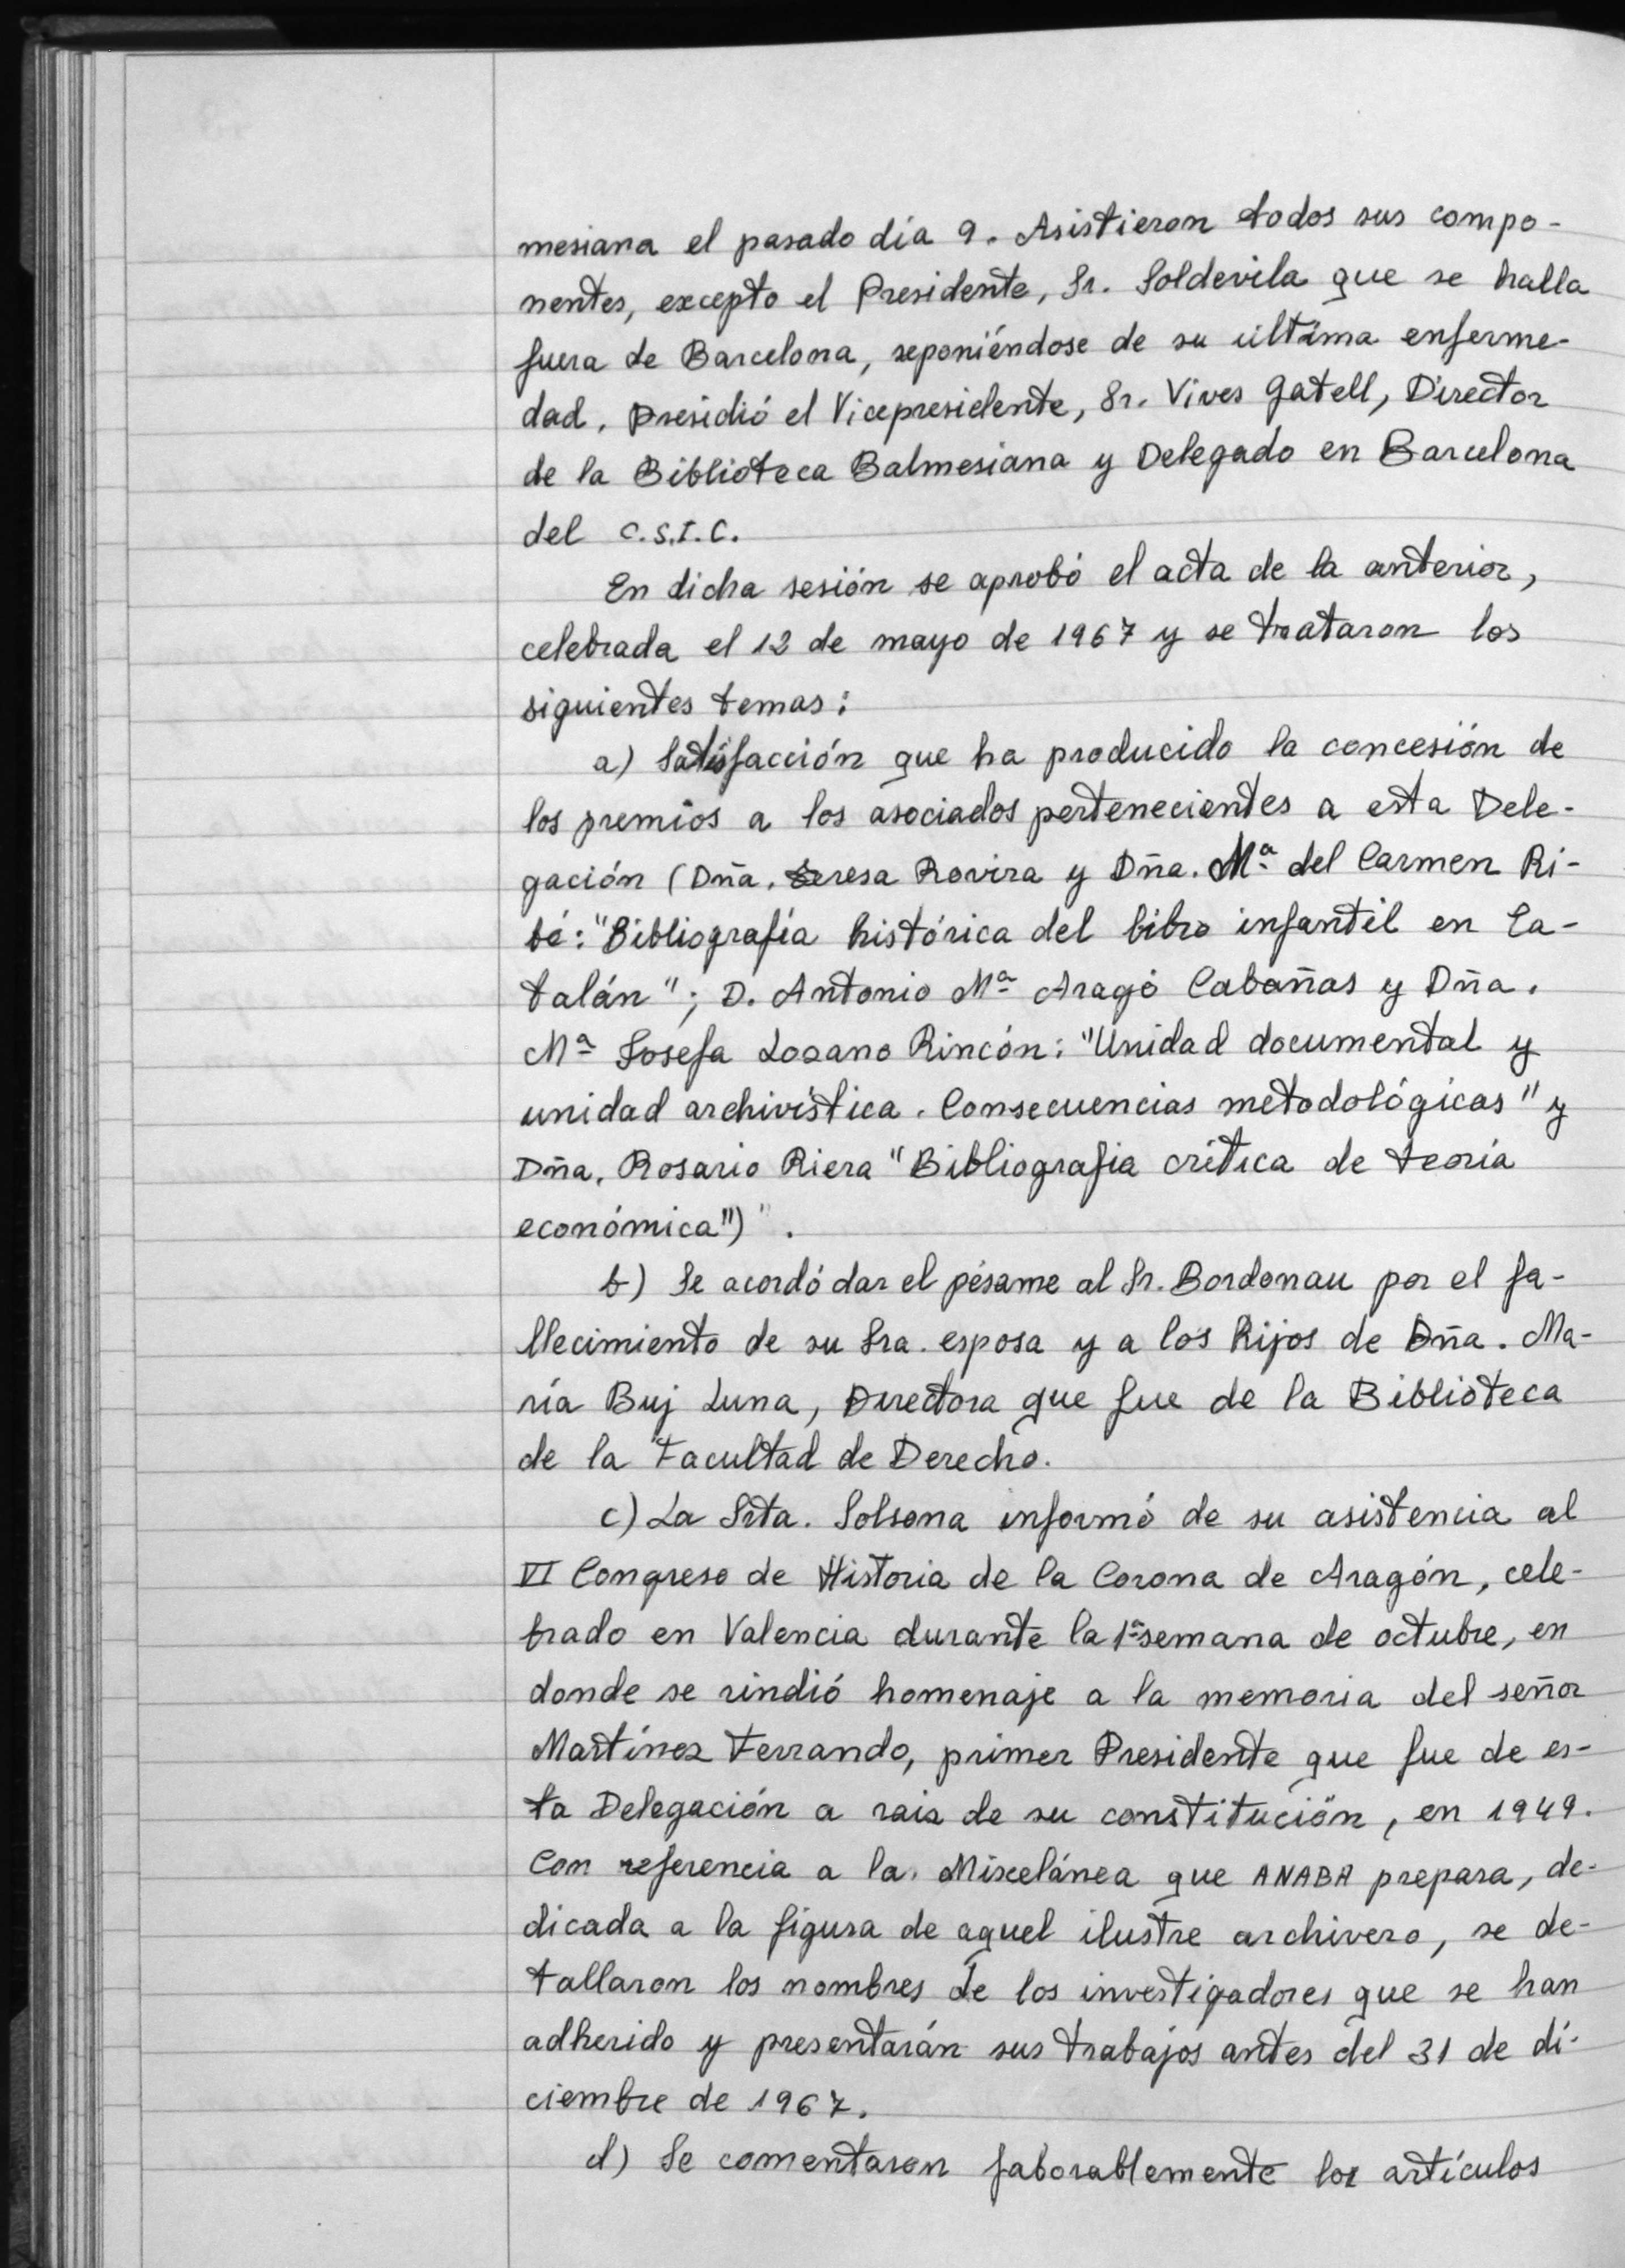 mesiana el pasado día 9. Asistieron todos sus compo-
nentes, excepto el Presidente, Sr. Soldevila que se halla
fuera de Barcelona, reponiéndose de su última enferme-
dad. Presidió el Vicepresidente, Sr. Vives Gatell, Director
de la Biblioteca Balmesiana y Delegado en Barcelona
del C.S.I.C.
En dicha sesión se aprobó el acta de la anterior,
celebrada el 12 de mayo de 1967 y se trataron los
siguientes temas:
a) Satisfacción que ha producido la concesión de
los premios a los asociados pertenecientes a esta Dele-
gación (Dña. Teresa Rovira y Dña. Mª del Carmen Ri-
bé: "Bibliografía histórica del libro infantil en Ca-
talán"; D. Antonio Mª Aragó Cabañas y Dña.
Mª Josefa Lozano Rincón: "Unidad documental y
unidad archivística. Consecuencias metodológicas" y
Dña. Rosario Riera "Bibliografia crítica de teoría
económica")".
b) Se acordó dar el pésame al Sr. Bordonau por el fa-
llecimiento de su Sra. esposa y a los hijos de Dña. Ma-
ría Buj Luna, Directora que fue de la Biblioteca
de la Facultad de Derecho.
c) La Srta. Solsona informó de su asistencia al
VI Congreso de Historia de la Corona de Aragón, cele-
brado en Valencia durante la 1ª semana de octubre, en
donde se rindió homenaje a la memoria del señor
Martínez Ferrando, primer Presidente que fue de es-
ta Delegación a raiz de su constitución, en 1949.
Con referencia a la Miscelánea que ANABA prepara, de-
dicada a la figura de aquel ilustre archivero, se de-
tallaron los nombres de los investigadores que se han
adherido y presentarán sus trabajos antes del 31 de di-
ciembre de 1967.
d) Se comentaron faborablemente los artículos